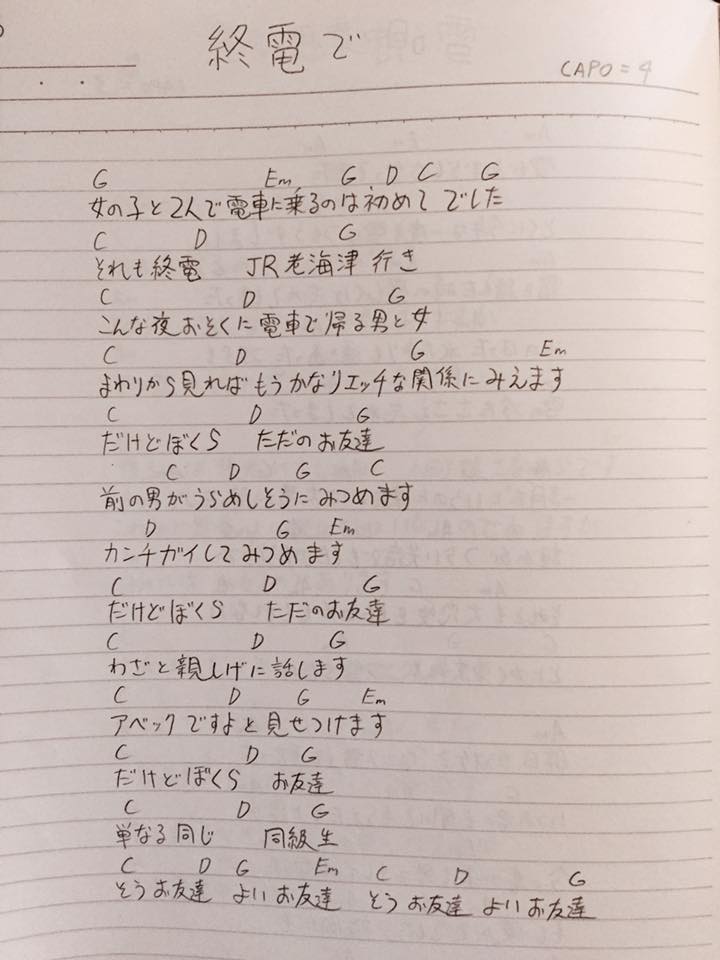 終電で
CAPO=4
G Em G D C G
女の子と2人で電車に乗るのは初めて でした
C D G
それも終電 JR老海津 行き
C D G
こんな夜おそくに電車で帰る男と女
C D G Em
まわりから見ればもうかなりエッチな関係にみえます
C D G
だけどぼくら ただのお友達
C D G C
前の男がうらめしそうにみつめます
D G Em
カンチガイしてみつめます
C D G
だけどぼくら ただのお友達
C D G
わざと親しげに話します
C D G Em
アベックですよと見せつけます
C D G
だけどぼくら お友達
C D G
単なる同じ 同級生
C D G Em C D G
そうお友達 よいお友達 そうお友達 よいお友達